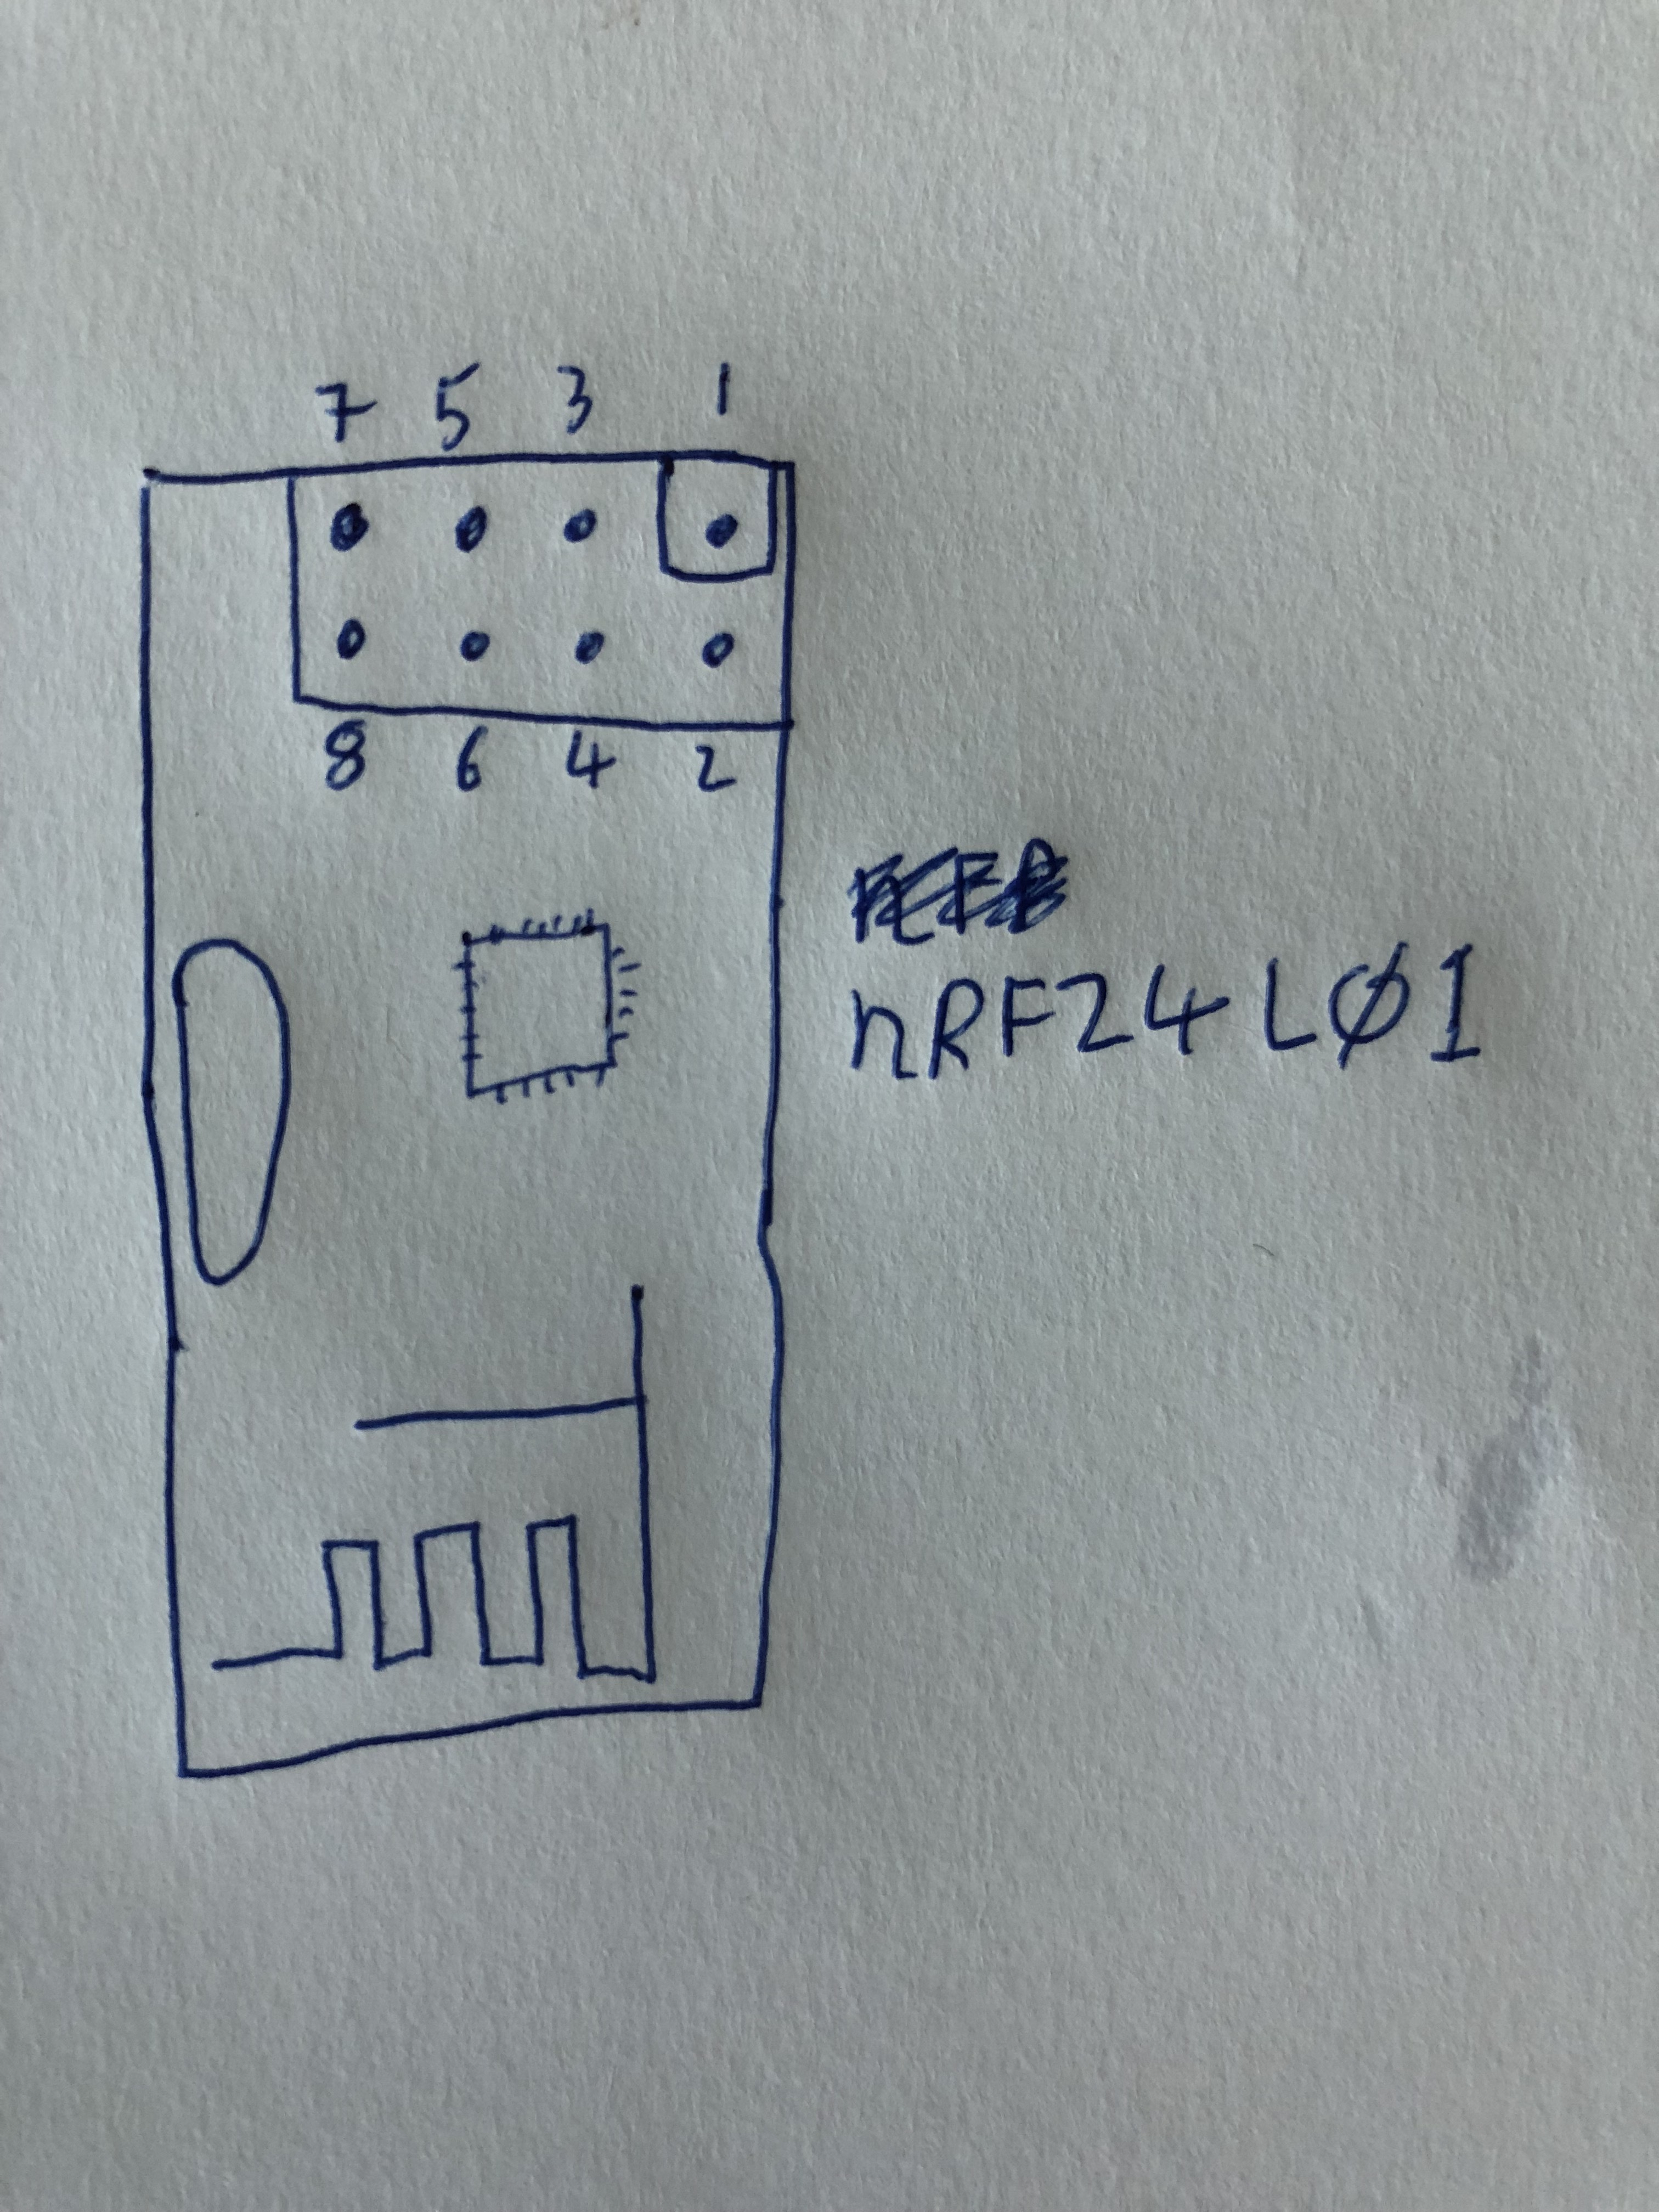 7 5 3 1
8 6 4 2
nRF24LØ1